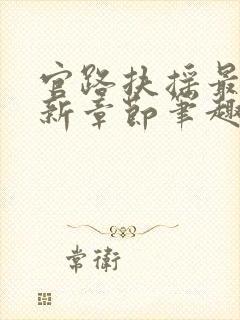 官路扶摇最
新章节笔趣
常卫